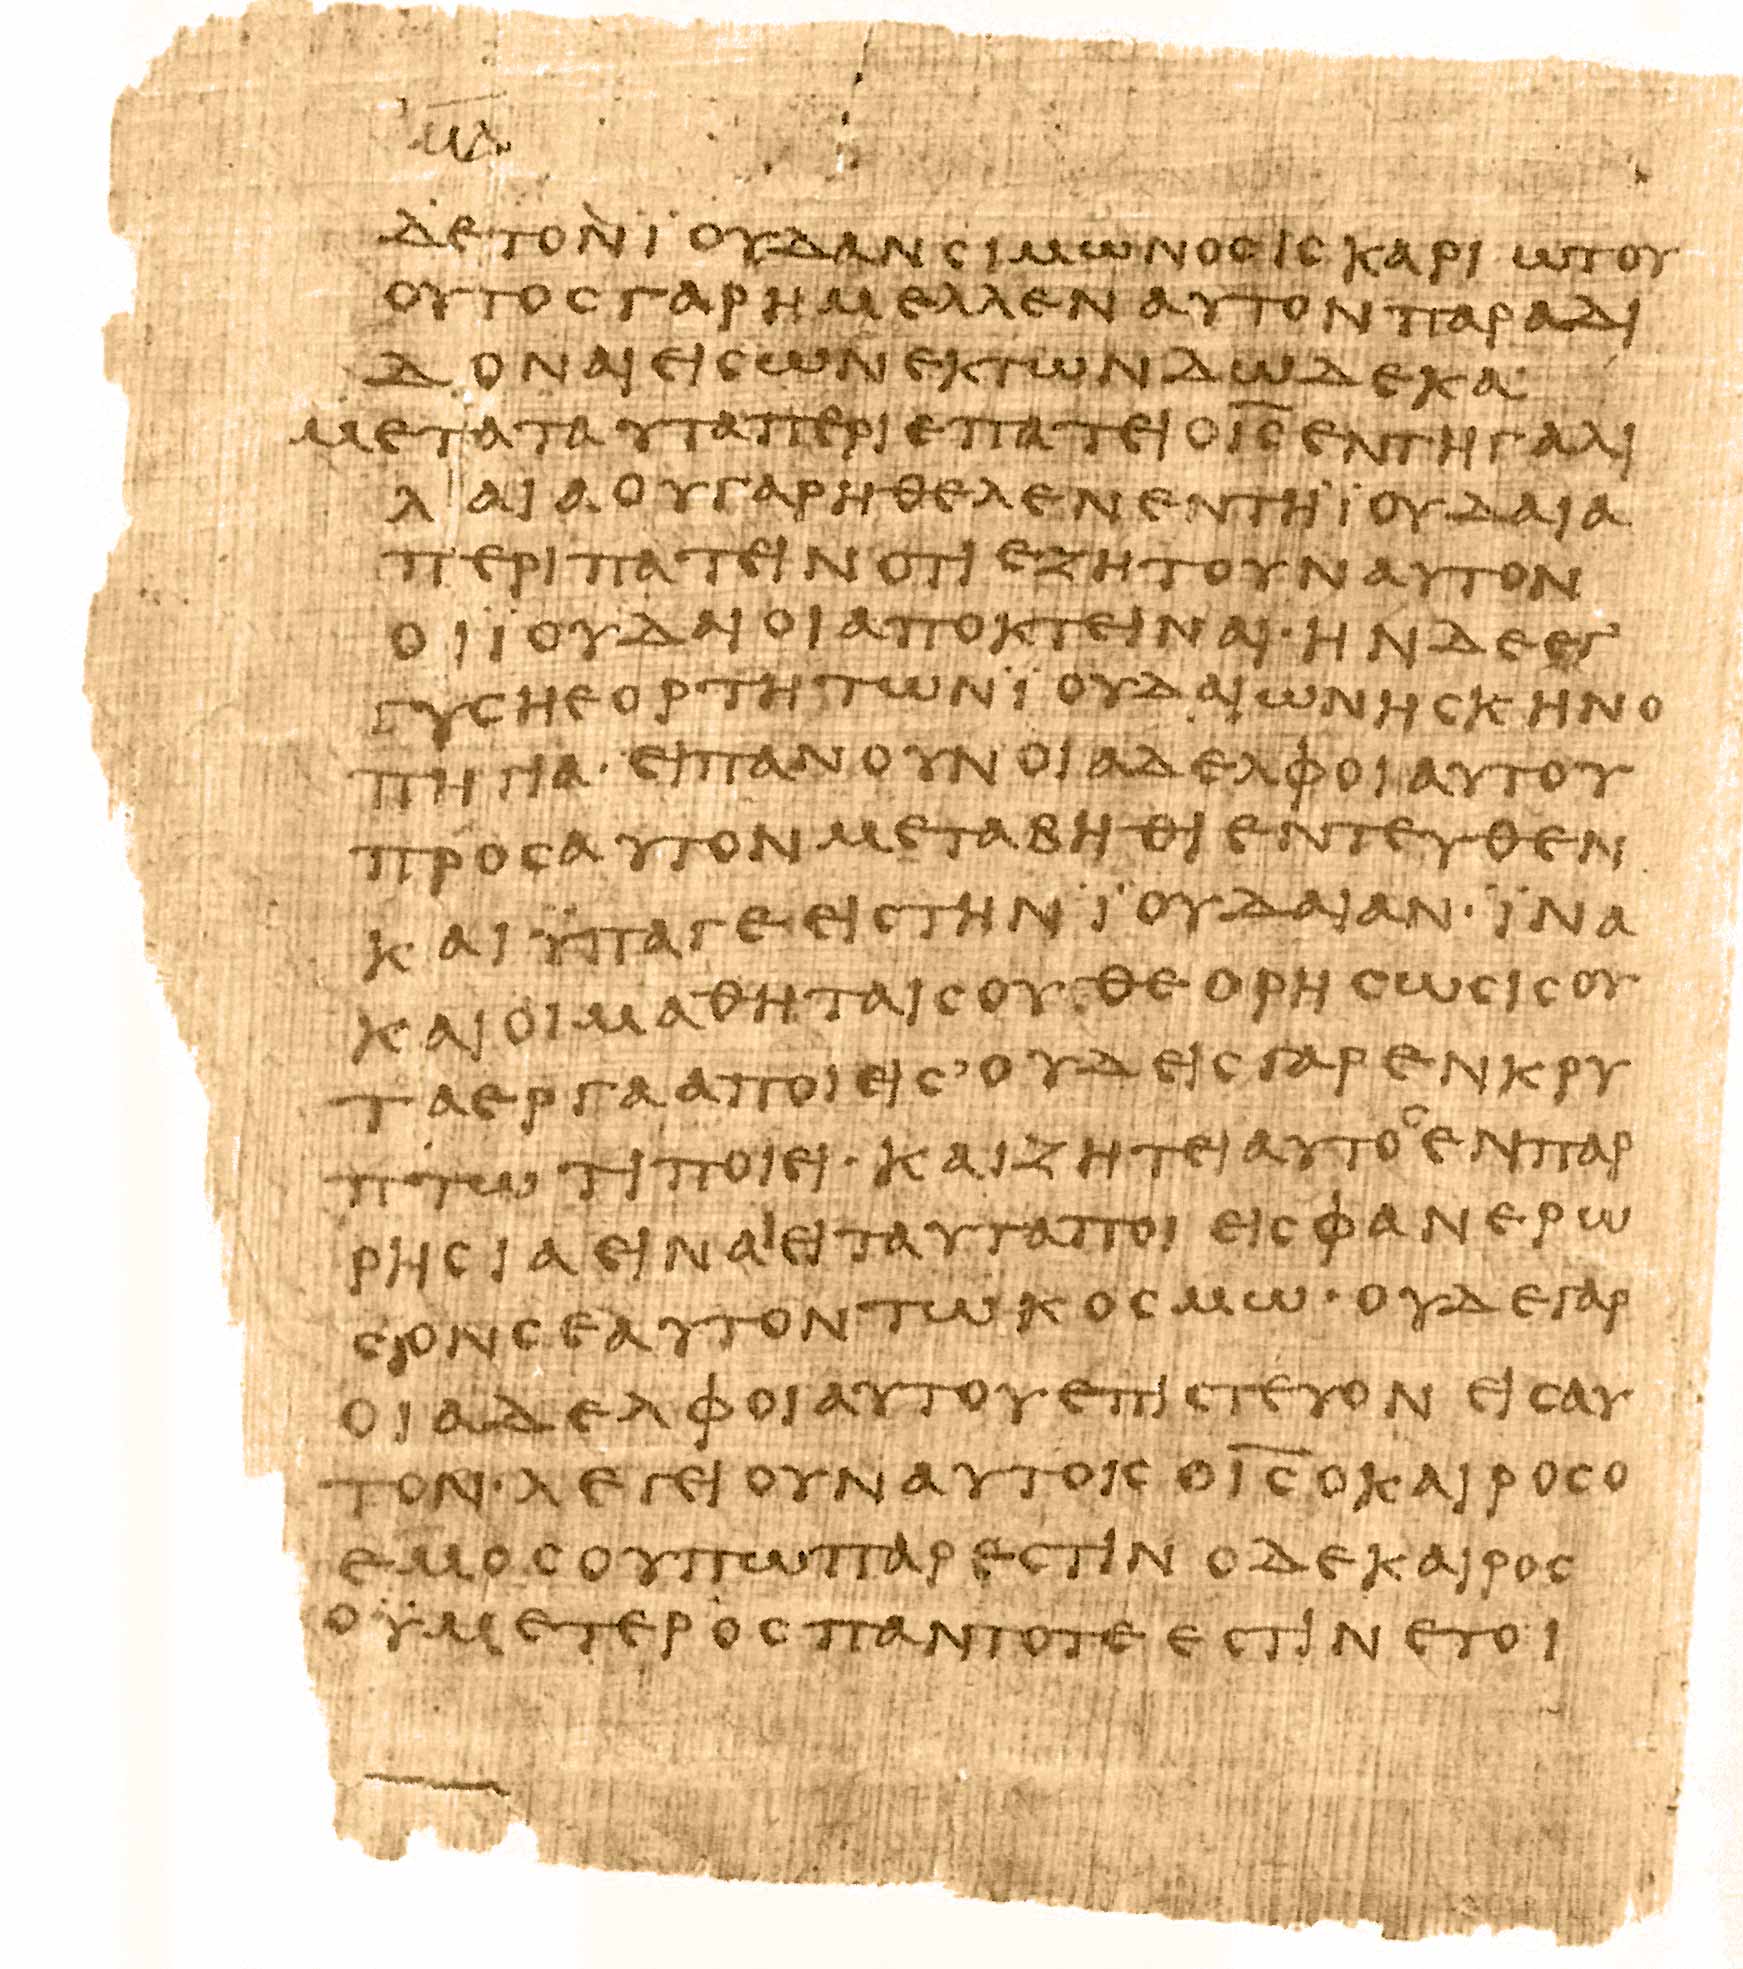 μδ
δετονϊουδανσιμωνοσισκαριωτου
ουτοσγαρημελλεναυτονπαραδι
δοναιεισωνεκτωνδωδεκα
μεταταυταπεριεπατειοι̅σ̅εντηγαλι
λαιαουγαρηθελενεντηϊουδαια
περιπατεινοτιεζητουναυτον
οιϊουδαιοιαποκτειναι·ηνδεεγ
γυσηεορτητωνϊουδαιωνησκηνο
πηγια·ειπανουνοιαδελφοιαυτου
προσαυτονμεταβηθιεντευθεν
καιϋπαγεειστηνϊουδαιαν·ϊνα
καιοιμαθηταισουθεορησωσισου
ταεργααποιεισ’ουδεισγαρενκρυ
πτωτιποιει·καιζητειαυτοσενπαρ
ρησιαειναιειταυταποιεισφανερω
σονσεαυτοντωκοσμω·ουδεγαρ
οιαδελφοιαυτουεπιστευονεισαυ
τον·λεγειουναυτοισοι̅σ̅οκαιροσο
εμοσουπωπαρεστινοδεκαιροσ
οϋμετεροσπαντοτεεστινετοι